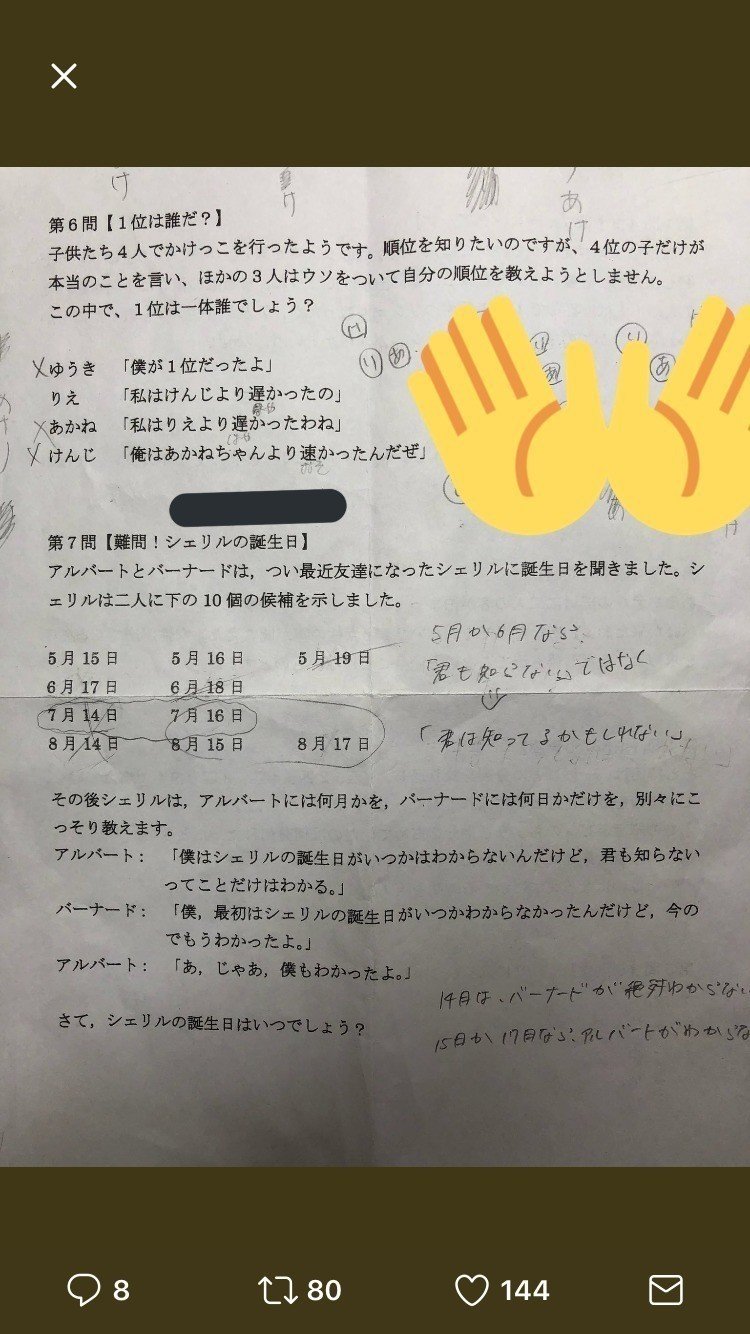 け
け
あけ
第6問【1位は誰だ?】
子供たち4人でかけっこを行ったようです。順位を知りたいのですが、4位の子だけが
本当のことを言い、ほかの3人はウソをついて自分の順位を教えようとしません。
この中で、1位は一体誰でしょう?
ゆうき 「僕が1位だったよ」
りえ 「私はけんじより遅かったの」
あかね 「私はりえより遅かったわね」
けんじ 「俺はあかねちゃんより速かったんだぜ」
第7問【難問!シェリルの誕生日】
アルバートとバーナードは,つい最近友達になったシェリルに誕生日を聞きました。シ
ェリルは二人に下の10個の候補を示しました。
5月か6月なら、
5月15日 5月16日 5月19日
「君も知らない」ではなく
6月17日 6月18日
7月14日 7月16日
「君は知ってるかもしれない」
8月14日 8月15日 8月17日
その後シェリルは,アルバートには何月かを,バーナードには何日かだけを,別々にこ
っそり教えます。
アルバート: 「僕はシェリルの誕生日がいつかはわからないんだけど,君も知らない
ってことだけはわかる。」
バーナード: 「僕,最初はシェリルの誕生日がいつかわからなかったんだけど,今の
でもうわかったよ。」
アルバート: 「あ,じゃあ,僕もわかったよ。」
14日は、バーナードが絶対わからない
さて,シェリルの誕生日はいつでしょう?
15日か17日なら、アルバートがわからな
8
80
144